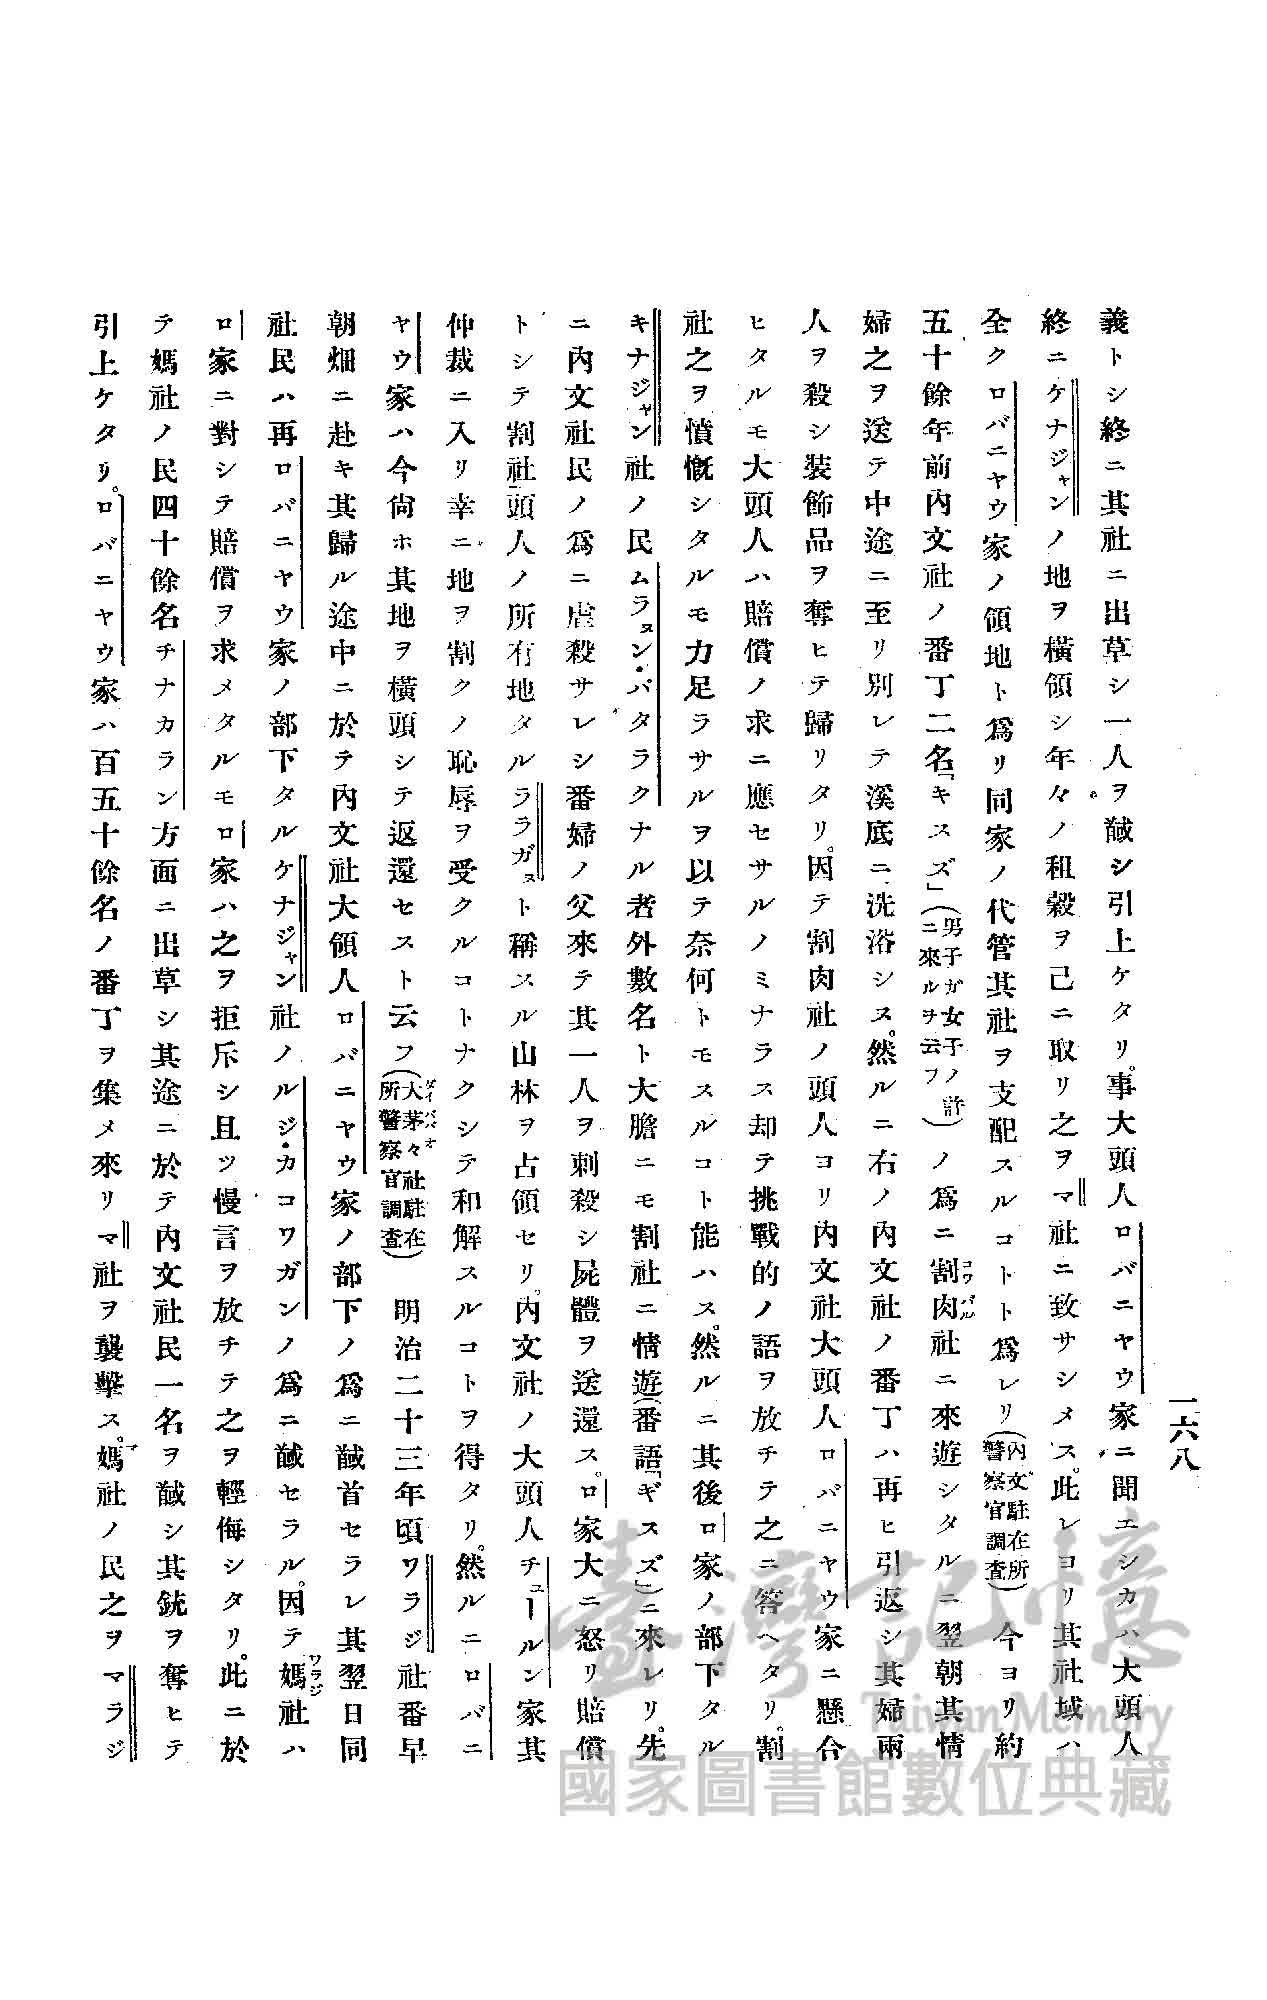 一六八
義トシ終ニ其社ニ出草シ一人ヲ馘シ引上ケタリ。事大頭人ロバニヤウ家ニ聞エシカハ大頭人
終ニケナジャンノ地ヲ橫領シ年々ノ租穀ヲ己ニ取リ之ヲマ社ニ致サシメス。此レヨリ其社域ハ
全クロバニヤウ家ノ領地ト爲リ同家ノ代管其社ヲ支配スルコトト爲レリ(內文駐在所警察官調査)今ヨリ約
五十餘年前內文社ノ番丁二名「キスズ」(男子ガ女子ノ許ニ來ルヲ云フ)ノ爲ニ割肉社ニ來遊シタルニ翌朝其情
婦之ヲ送テ中途ニ至リ別レテ溪底ニ洗浴シス。然ルニ右ノ內文社ノ番丁ハ再ヒ引返シ其婦兩
人ヲ殺シ裝飾品ヲ奪ヒテ歸リタリ。因テ割肉社ノ頭人ヨリ內文社大頭人ロバニヤウ家ニ懸合
ヒタルモ大頭人ハ賠償ノ求ニ應セサルノミナラス却テ挑戰的ノ語ヲ放チテ之ニ答ヘタリ。割
社之ヲ憤慨シタルモ力足ラサルヲ以テ奈何トモスルコト能ハス。然ルニ其後ロ家ノ部下タル
キナジャン社ノ民ムラヌン・バタラクナル者外數名ト大膽ニモ割社ニ情遊(番語「ギスズ」)ニ來レリ。先
ニ內文社民ノ爲ニ虐殺サレシ番婦ノ父來テ其一人ヲ刺殺シ屍體ヲ送還ス。ロ家大ニ怒リ賠償
トシテ割社頭人ノ所有地タルララガスト稱スル山林ヲ占領セリ。內文社ノ大頭人チュールン家其
仲裁ニ入リ幸ニ地ヲ割クノ恥辱ヲ受クルコトナクシテ和解スルコトヲ得タリ。然ルニロバニ
ヤウ家ハ今尙ホ其地ヲ橫頭シテ返還セスト云フ(大茅々社駐在所警察官調査) 明治二十三年頃ワラジ社番早
朝畑ニ赴キ其歸ル途中ニ於テ內文社大領人ロバニヤウ家ノ部下ノ爲ニ馘首セラレ其翌日同
社民ハ再ロバニヤウ家ノ部下タルケナジャン社ノルジ・カコワガンノ爲ニ馘セラル。因テ媽社ハ
ロ家ニ對シテ賠償ヲ求メタルモロ家ハ之ヲ拒斥シ且ツ慢言ヲ放チテ之ヲ輕侮シタリ。此ニ於
テ媽社ノ民四十餘名チナカラン方面ニ出草シ其途ニ於テ內文社民一名ヲ馘シ其銃ヲ奪ヒテ
引上ケタリ。ロバニヤウ家ハ百五十餘名ノ番丁ヲ集メ來リマ社ヲ襲擊ス。媽社ノ民之ヲマラジ
臺灣記憶
Taiwan Memory
國家圖書館數位典藏